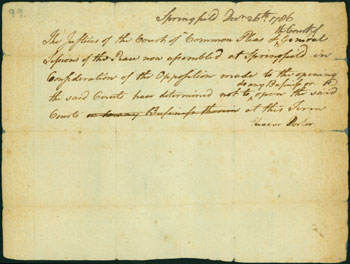 Springfield Decr 26th 1786
The Justices of the Court of Common Pleas & Court of General
Sessions of the Peace now assembled at Springfield in
Consideration of the Opposition made to the opening
the said Courts have determined not to open the said
Courts or to any Business therein at this Term
Eleazer Porter